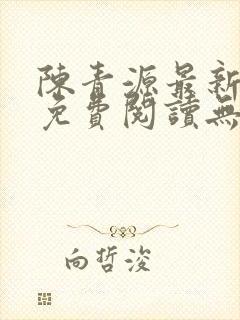 陳青源最新
免費閱讀無
向哲浚